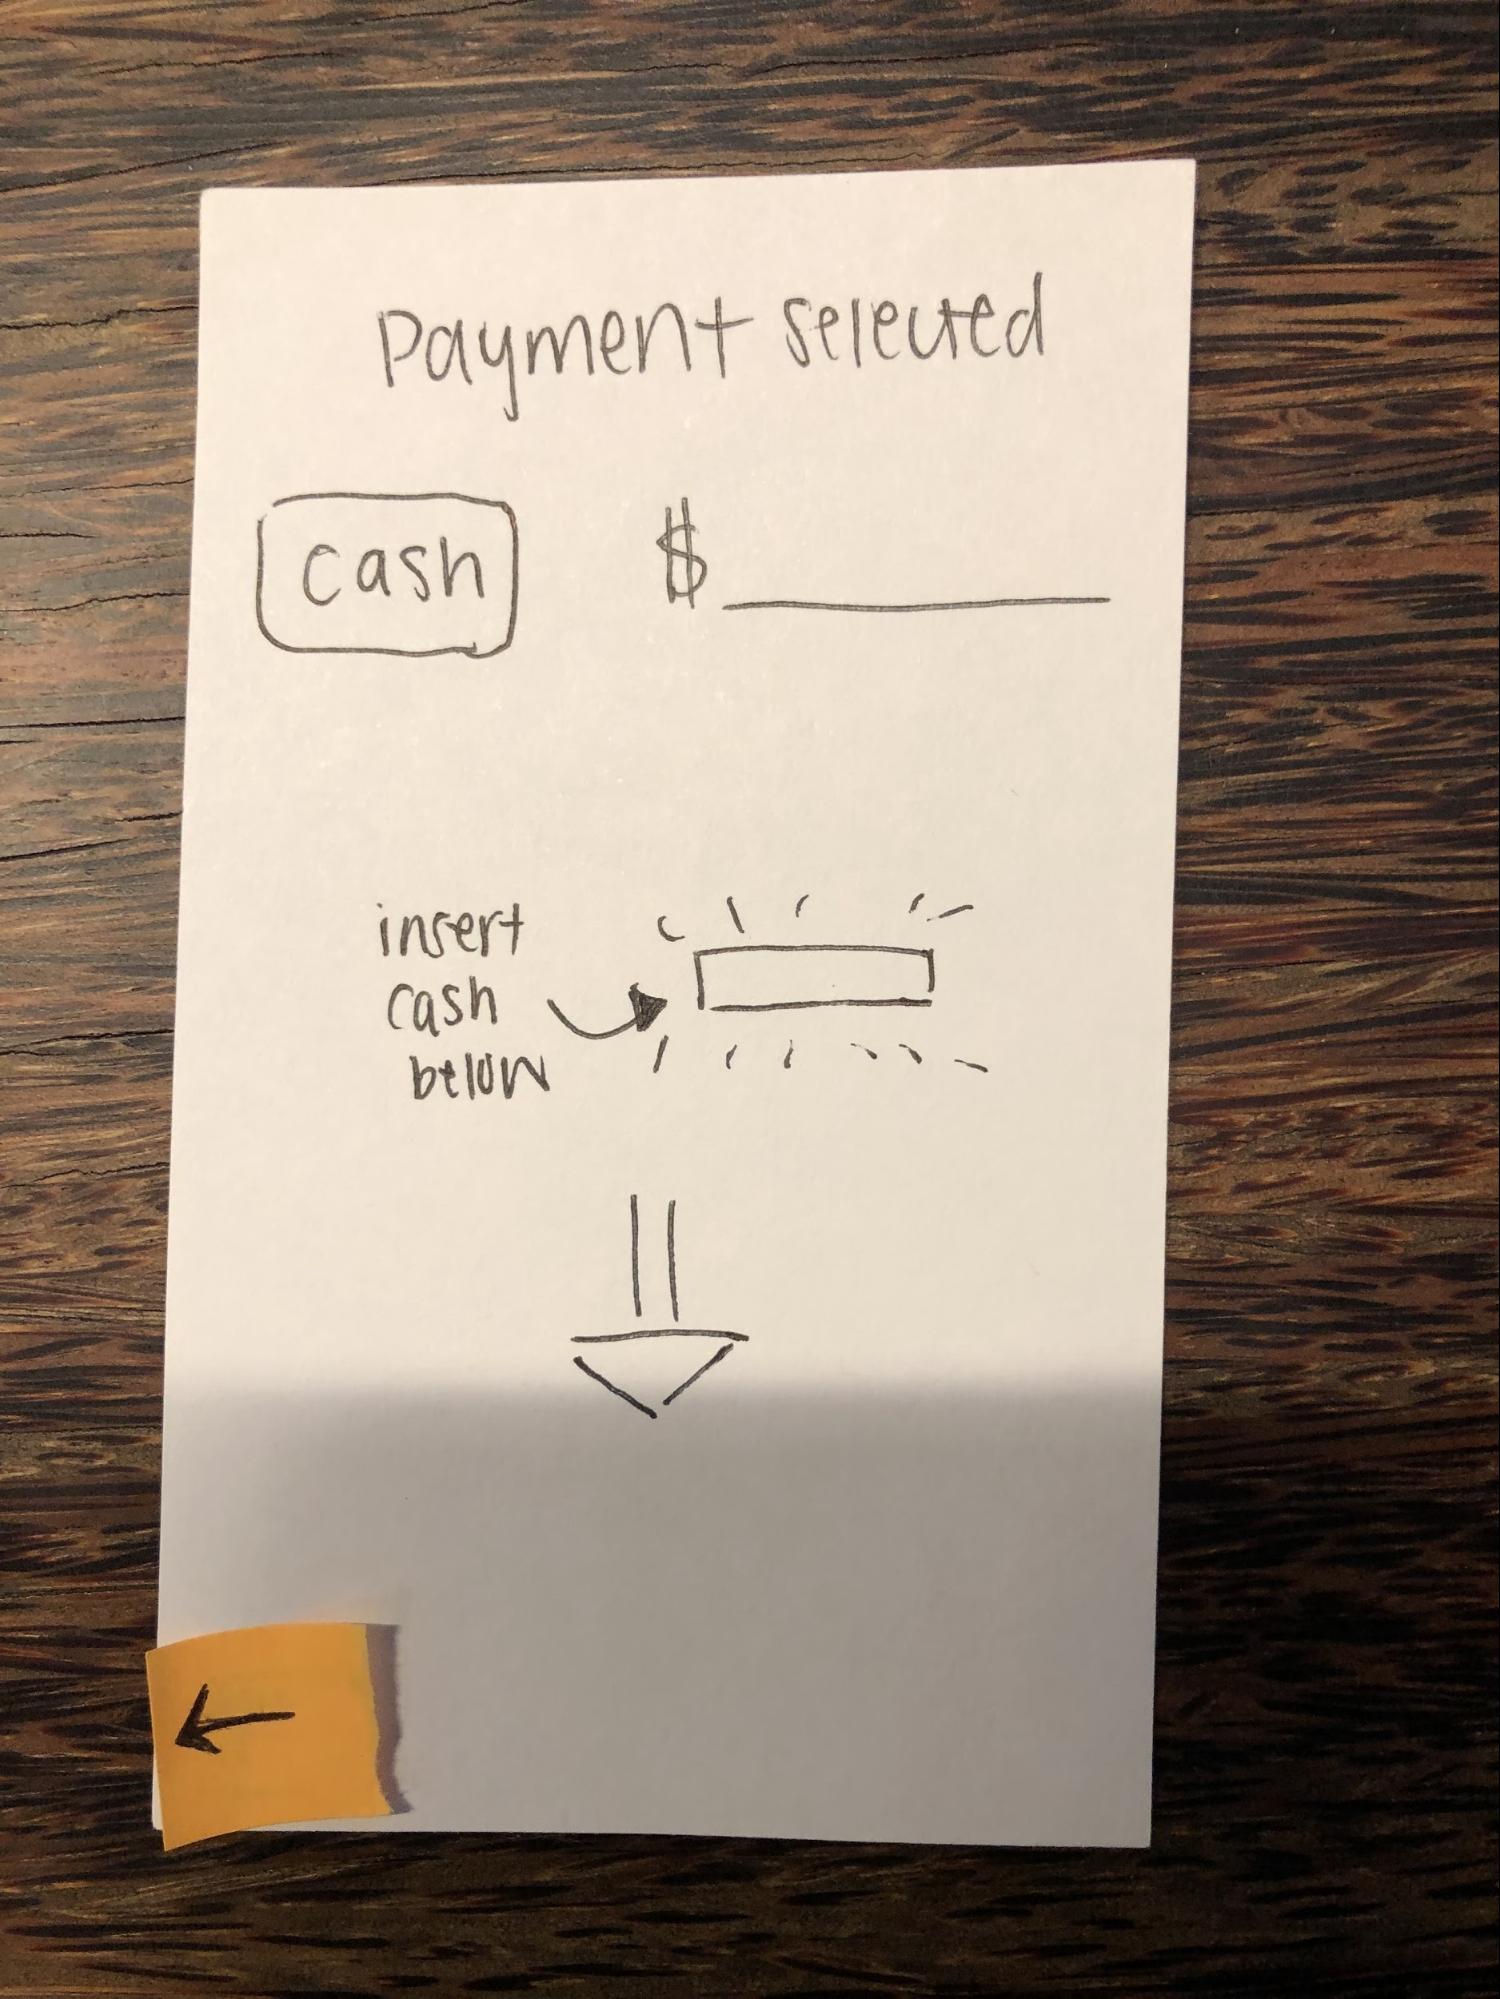 Payment selected
cash $
insert
cash
below